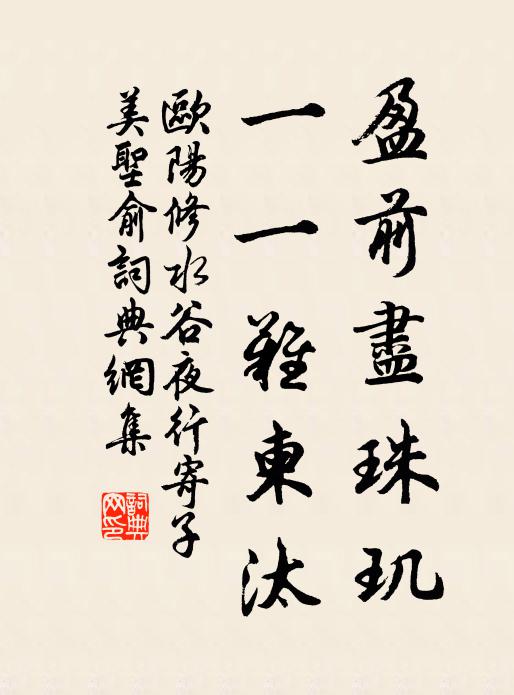 盈前盡珠玑
一一難東汰
歐陽修水谷夜行寄子
美聖俞詞典網集
詞典
网印